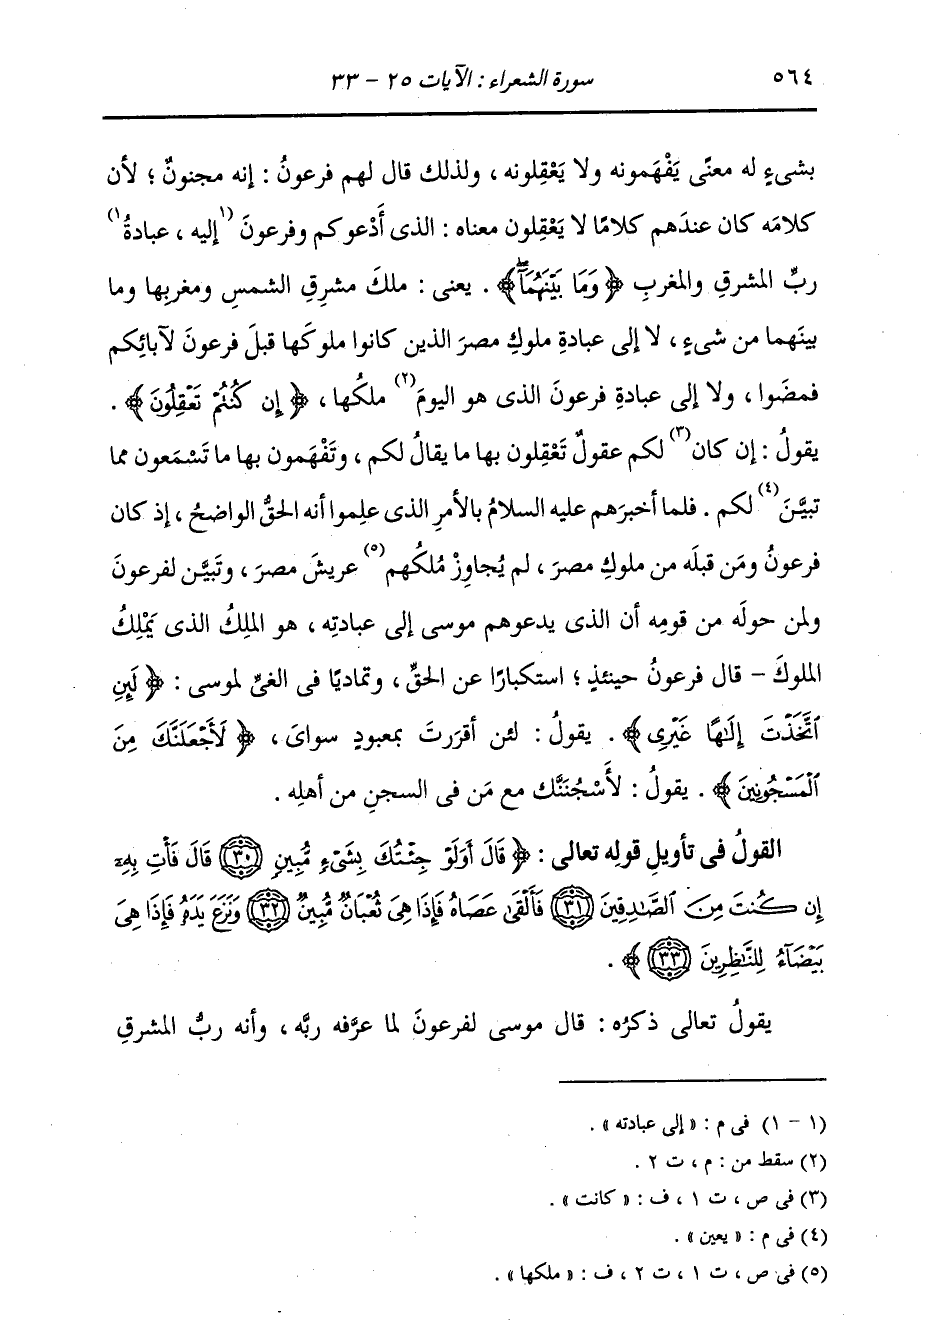 ٥٦٤ سورة الشعراء : الآيات ٢٥ - ٣٣
بشىءٍ له معنًى يَفْهَمونه ولا يَعْقِلونه ، ولذلك قال لهم فرعونُ : إنه مجنونٌ ؛ لأن
كلامَه كان عندَهم كلامًا لا يَعْقِلون معناه : الذى أَدْعوكم وفرعونَ (١إليه ، عبادةُ١)
ربِّ المشرقِ والمغربِ ﴿وَمَا بَيْنَهُمَآ﴾ . يعنى : ملكَ مشرِقِ الشمسِ ومغربِها وما
بينَهما من شىءٍ ، لا إلى عبادةِ ملوكِ مصرَ الذين كانوا ملوكَها قبلَ فرعونَ لآبائِكم
فمضَوا ، ولا إلى عبادةِ فرعونَ الذى هو اليومَ(٢) ملكُها ، ﴿إِن كُنتُمْ تَعْقِلُونَ﴾ .
يقولُ : إن كان(٣) لكم عقولٌ تَعْقِلون بها ما يقالُ لكم ، وتَفْهَمون بها ما تَسْمَعون مما
تبيَّنَ(٤) لكم . فلما أخبرَهم عليه السلامُ بالأمرِ الذى علِموا أنه الحقُّ الواضحُ ، إذ كان
فرعونُ ومَن قبلَه من ملوكِ مصرَ ، لم يُجاوِزْ مُلكُهم(٥) عريشَ مصرَ ، وتَبَيَّن لفرعونَ
ولمن حولَه من قومِه أن الذى يدعوهم موسى إلى عبادتِه ، هو الملِكُ الذى يَمْلِكُ
الملوكَ - قال فرعونُ حينئذٍ ؛ استكبارًا عن الحقِّ ، وتماديًا فى الغىِّ لموسى : ﴿لَئِنِ
ٱتَّخَذْتَ إِلَٰهًا غَيْرِى﴾ . يقولُ : لئن أقررَتَ بمعبودٍ سواىَ ، ﴿لَأَجْعَلَنَّكَ مِنَ
ٱلْمَسْجُونِينَ﴾ . يقولُ : لأَسْجُنَنَّك مع مَن فى السجنِ من أهلِه .
القولُ فى تأويلِ قوله تعالى : ﴿قَالَ أَوَلَوْ جِئْتُكَ بِشَىْءٍ مُّبِينٍ ٣٠ قَالَ فَأْتِ بِهِۦٓ
إِن كُنتَ مِنَ ٱلصَّٰدِقِينَ ٣١ فَأَلْقَىٰ عَصَاهُ فَإِذَا هِىَ ثُعْبَانٌ مُّبِينٌ ٣٢ وَنَزَعَ يَدَهُۥ فَإِذَا هِىَ
بَيْضَآءُ لِلنَّٰظِرِينَ ٣٣﴾ .
يقولُ تعالى ذكرُه : قال موسى لفرعونَ لما عرَّفه ربَّه ، وأنه ربُّ المشرقِ
(١ - ١) فى م : « إلى عبادته » .
(٢) سقط من : م ، ت ٢ .
(٣) فى ص ، ت ١ ، ف : « كانت » .
(٤) فى م : « يعين » .
(٥) فى ص ، ت ١ ، ت ٢ ، ف : « ملكها » .